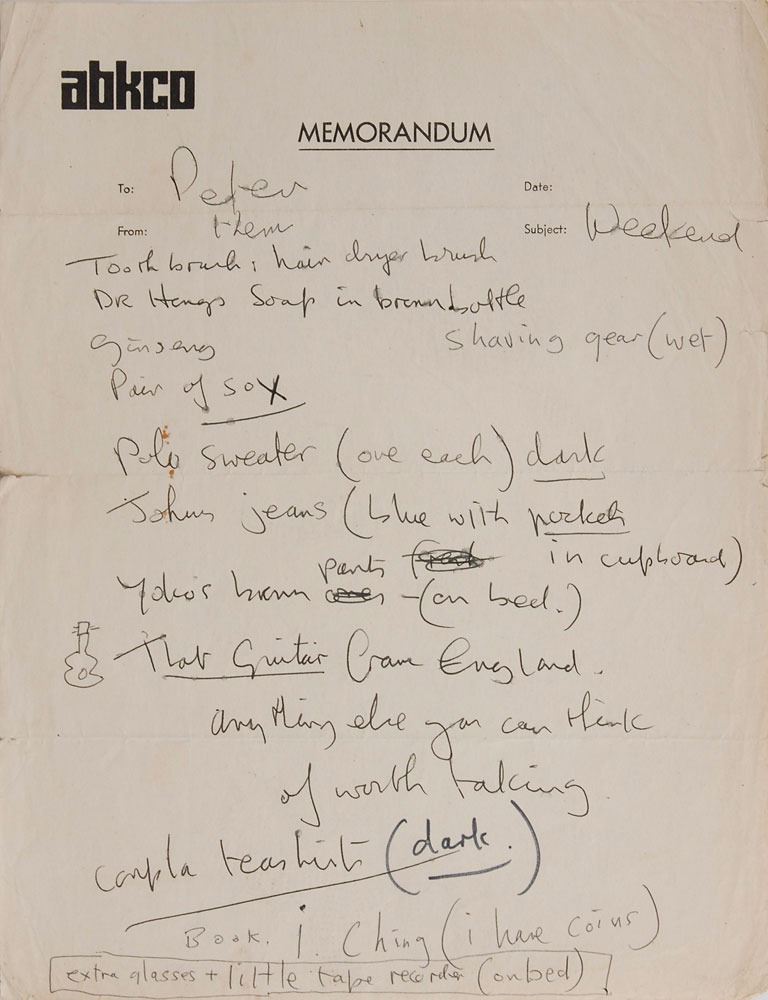 abkco
MEMORANDUM
To: Peter
Date:
From: them
Subject: Weekend
Toothbrush; hair dryer brush
DR Hangs Soap in brown bottle
Ginseng
shaving gear (wet)
Pair of sox
Polo sweater (one each) dark
Johns jeans (blue with pockets
in cupboard)
Yoko's brown pants - (on bed.)
That Guitar from England.
anything else you can think
of worth taking.
coupla teashirts (dark.)
Book. i. Ching (i have coins)
extra glasses + little tape recorder (on bed)